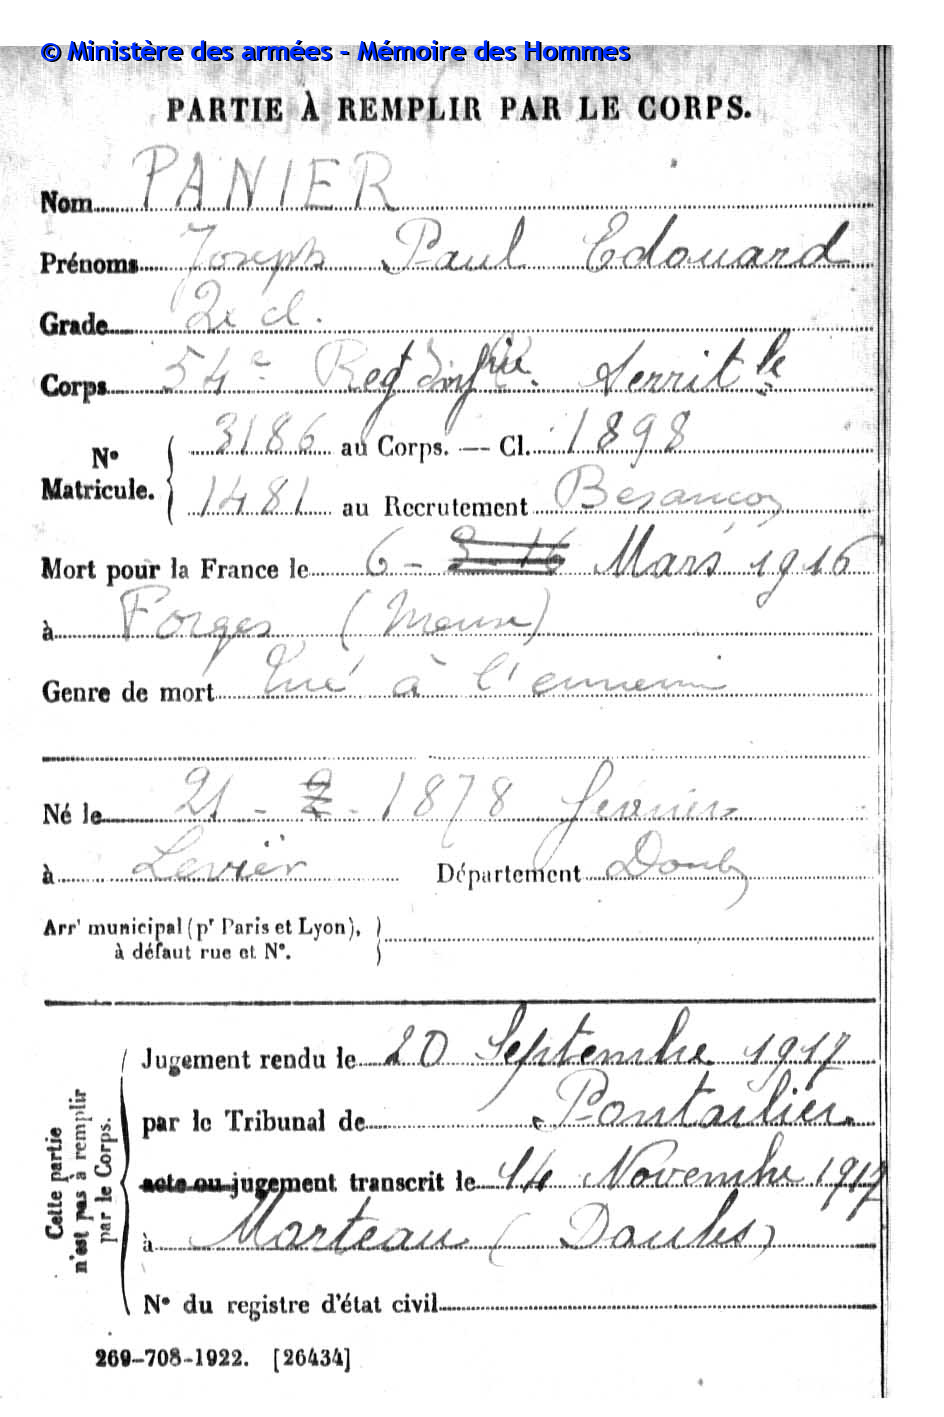 © Ministère des armées - Mémoire des Hommes
PARTIE À REMPLIR PAR LE CORPS.
Nom PANIER
Prénoms Joseph Paul Edouard
Grade 2e cl.
Corps 54e Regt Infrie Territle
N° Matricule. 3186 au Corps. — Cl. 1898
1481 au Recrutement Besançon
Mort pour la France le 6 - Mars 1916
à Forges (Meuse)
Genre de mort Tué à l'ennemi
Né le 21 - 2 - 1878 février
à Levier Département Doubs
Arrt municipal (pr Paris et Lyon),
à défaut rue et N°.
Cette partie n'est pas à remplir par le Corps.
Jugement rendu le 20 Septembre 1917
par le Tribunal de Pontarlier
acte ou jugement transcrit le 14 Novembre 1917
à Morteau (Doubs)
N° du registre d'état civil
269-708-1922. [26434]